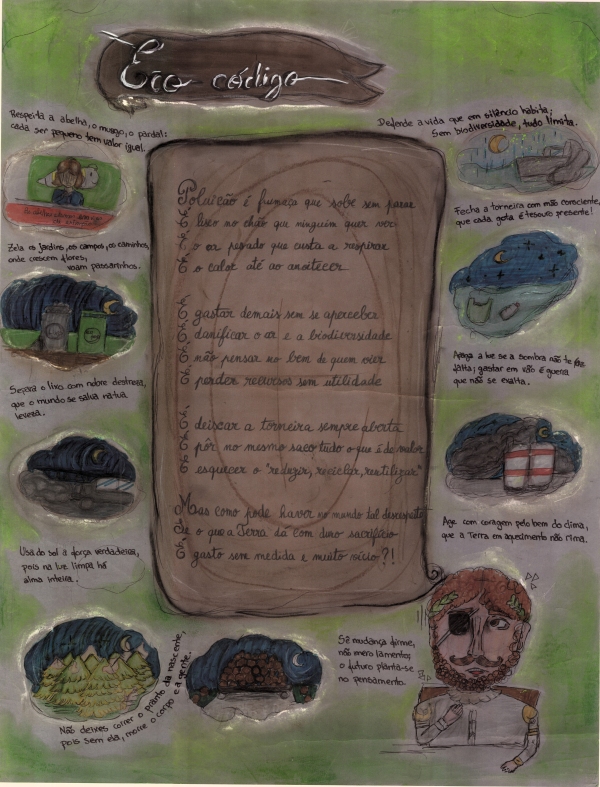 Eco código
Respeita a abelha, o musgo, o pardal:
cada ser pequeno tem valor igual.
Zela os jardins, os campos, os caminhos,
onde crescem flores,
voam passarinhos.
Separa o lixo com nobre destreza,
que o mundo se salva na tua
leveza.
Usa do sol a força verdadeira,
pois na luz limpa há
alma inteira.
Não deixes correr o pranto da nascente,
pois sem ela, morre o corpo e a gente.
Poluição é fumeça que sobe sem parar
É lixo no chão que ninguém quer ver
É o ar pesado que custa a respirar
É o calor até ao anoitecer
É gastar demais sem se aperceber
É danificar o ar e a biodiversidade
É não pensar no bem de quem vier
É perder recursos sem utilidade
É deixar a torneira sempre aberta
É pôr no mesmo saco tudo o que é de malor
É esquecer o "reduzir, reciclar, reutilizar"
Mas como pode haver no mundo tal desrespeito
Se o que a Terra dá com duro sacrifício
É gasto sem medida e muito vício?!
Defende a vida que em silêncio habita;
Sem biodiversidade, tudo limita.
Fecha a torneira com mão consciente,
que cada gota é tesouro presente!
Apaga a luz se a sombra não te faz
falta; gastar em vão é guerra
que não se exalta.
Age com coragem pelo bem do clima,
que a Terra em aquecimento não rima.
Sê mudança firme,
não mero lamento;
o futuro planta-se
no pensamento.